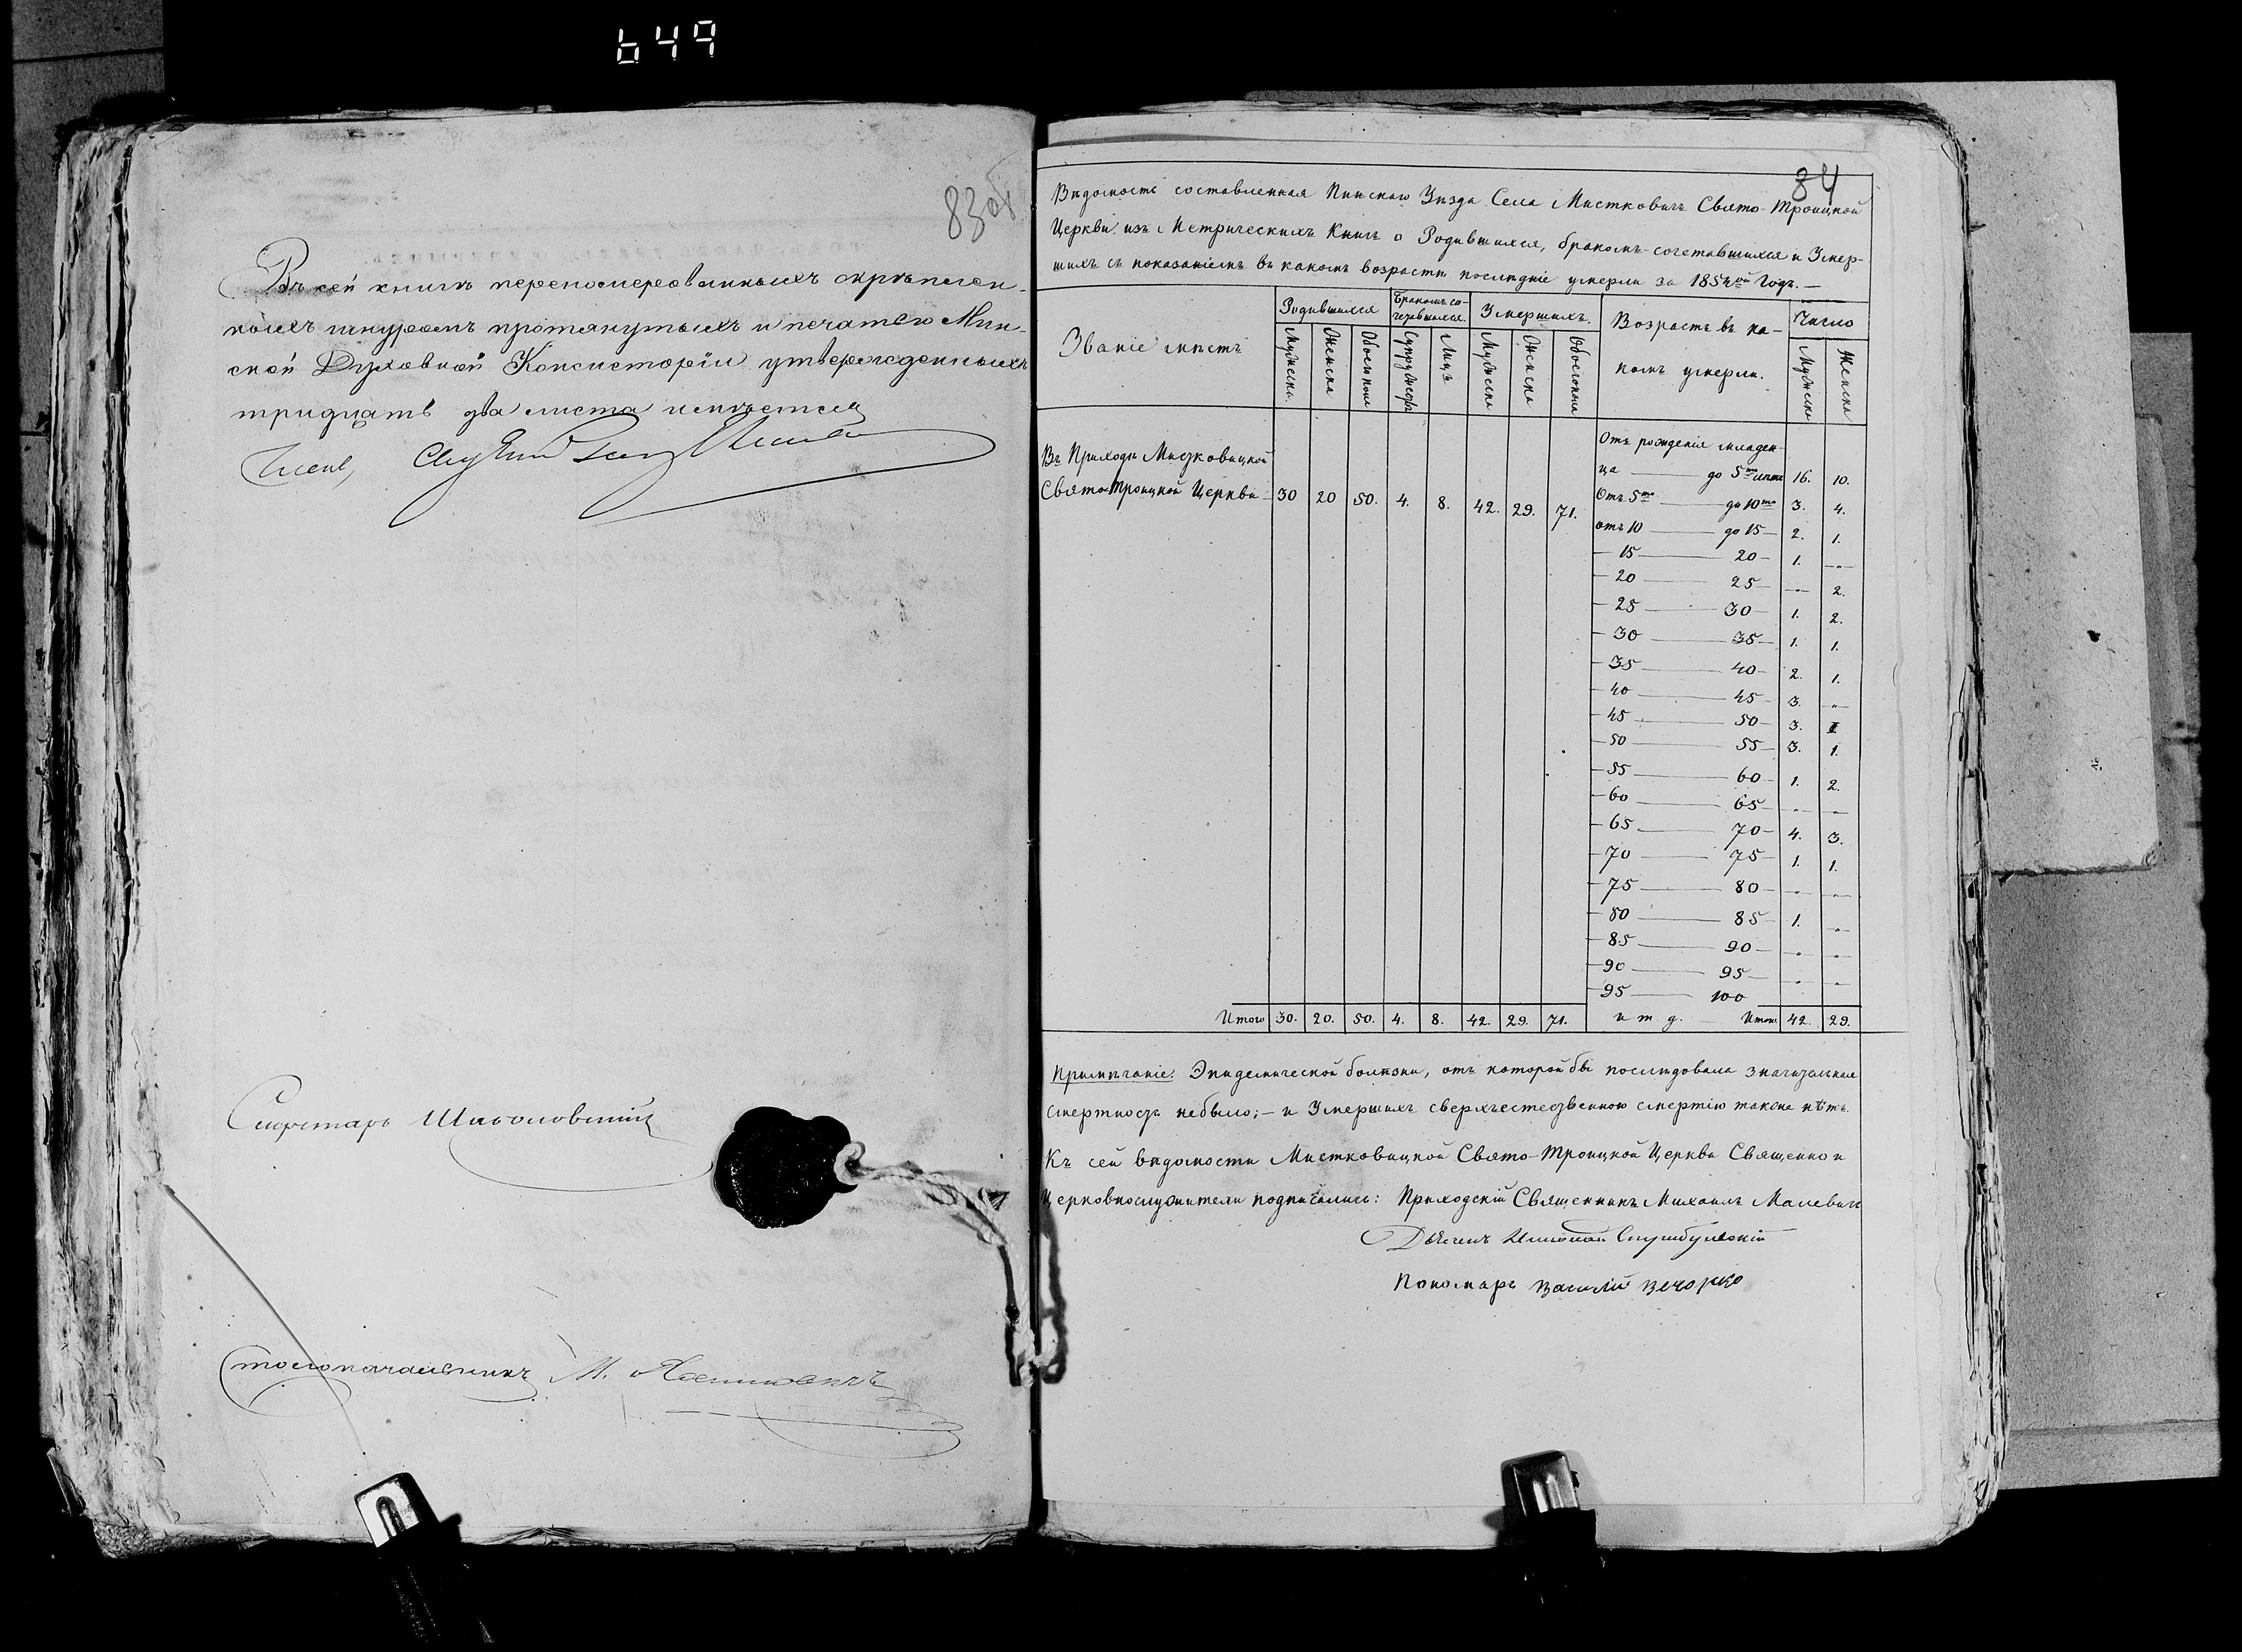 649
83 об
Въ сей книгѣ перенумерованныхъ скрѣплен-
ныхъ шнуромъ протянутыхъ и печатью Мин-
ской Духовной Консисторіи утвержденныхъ
тридцать два листа имѣется
Членъ,
Секретарь
Столоначальникъ М.
84
Вѣдомость составленная Пинскаго Уѣзда Села Мистковичъ Свято-Троицкой
Церкви изъ Метрическихъ Книгъ о Родившихся, бракомъ-сочетавшихся и Умер-
шихъ съ показаніемъ въ какомъ возрастѣ послѣдніе умерли за 1854й Годъ. —
Званіе мѣстъ
Родившихся
Бракомъ со-
четавшихся.
Умершихъ.
Возрастъ въ ка-
комъ умерли.
Число
Мужеска Женска Обоегопола Супружествъ Лицъ Мужеска Женска Обоегопола Мужеска Женска
Въ Приходѣ Мистковицкой
Свято-Троицкой Церкви 30 20 50. 4. 8. 42. 29. 71.
Отъ рожденія младен-
ца — до 5ти лѣтъ 16. 10.
Отъ 5ти — до 10ти 3. 4.
отъ 10 — до 15 — 2. 1.
— 15 — 20 — 1. -„-
— 20 — 25 — -„- 2.
— 25 — 30 — 1. 2.
— 30 — 35 — 1. 1.
— 35 — 40 — 2. 1.
— 40 — 45 — 3. „
— 45 — 50 — 3. 1
— 50 — 55 — 3. 1.
— 55 — 60 — 1. 2.
— 60 — 65 — „ „
— 65 — 70 — 4. 3.
— 70 — 75 — 1. 1.
— 75 — 80 — „ „
— 80 — 85 — 1. „
— 85 — 90 — „ „
— 90 — 95 — „ „
— 95 — 100
Итого 30. 20. 50. 4. 8. 42. 29. 71. и т. д. — Итого 42. 29.
Примѣчаніе. Эпидемической болѣзни, отъ которой бы послѣдовала значительная
смертность небыло; — и Умершихъ сверхъестественною смертію также нѣтъ.
Къ сей вѣдомости Мистковицкой Свято-Троицкой Церкви Священно и
Церковнослужители подписались: Приходскій Священникъ Михаилъ Малевичъ
Дьячекъ
Пономарь Василій Вечорко